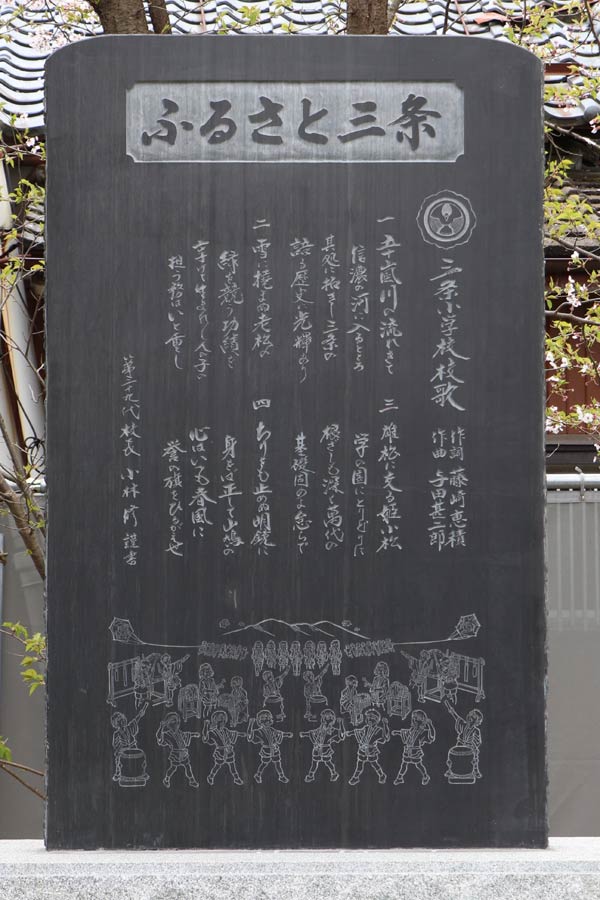 ふるさと三条
三条小学校校歌
作詞 藤崎恵積
作曲 与田甚二郎
一 五十嵐川の流れきて
信濃の河に入るところ
其処に拓きし三条の
語る歴史に光輝あり
二 雪に撓まぬ老松の
緑を競う功績を
享けて生まれし人の子が
担う務はいと重し
三 雄松に交る姫小松
学の園にとりどりに
根ざしも深く萬代の
基礎固めよ怠らで
四 ちりも止めぬ明鏡に
身をば正して山鳩の
心はいつも春風に
誉の旗をひるがえせ
代校長 小林 謹書